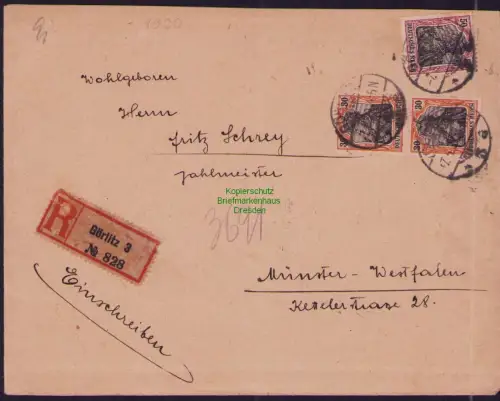 1920
Wohlgeboren
Herrn
Fritz Schrey
Zahlmeister
Kopierschutz
Briefmarkenhaus
Dresden
R
Görlitz 3
№ 828
3691
Einschreiben
Münster-Westfalen
Kettelerstrasse 28.
50
30
30 30